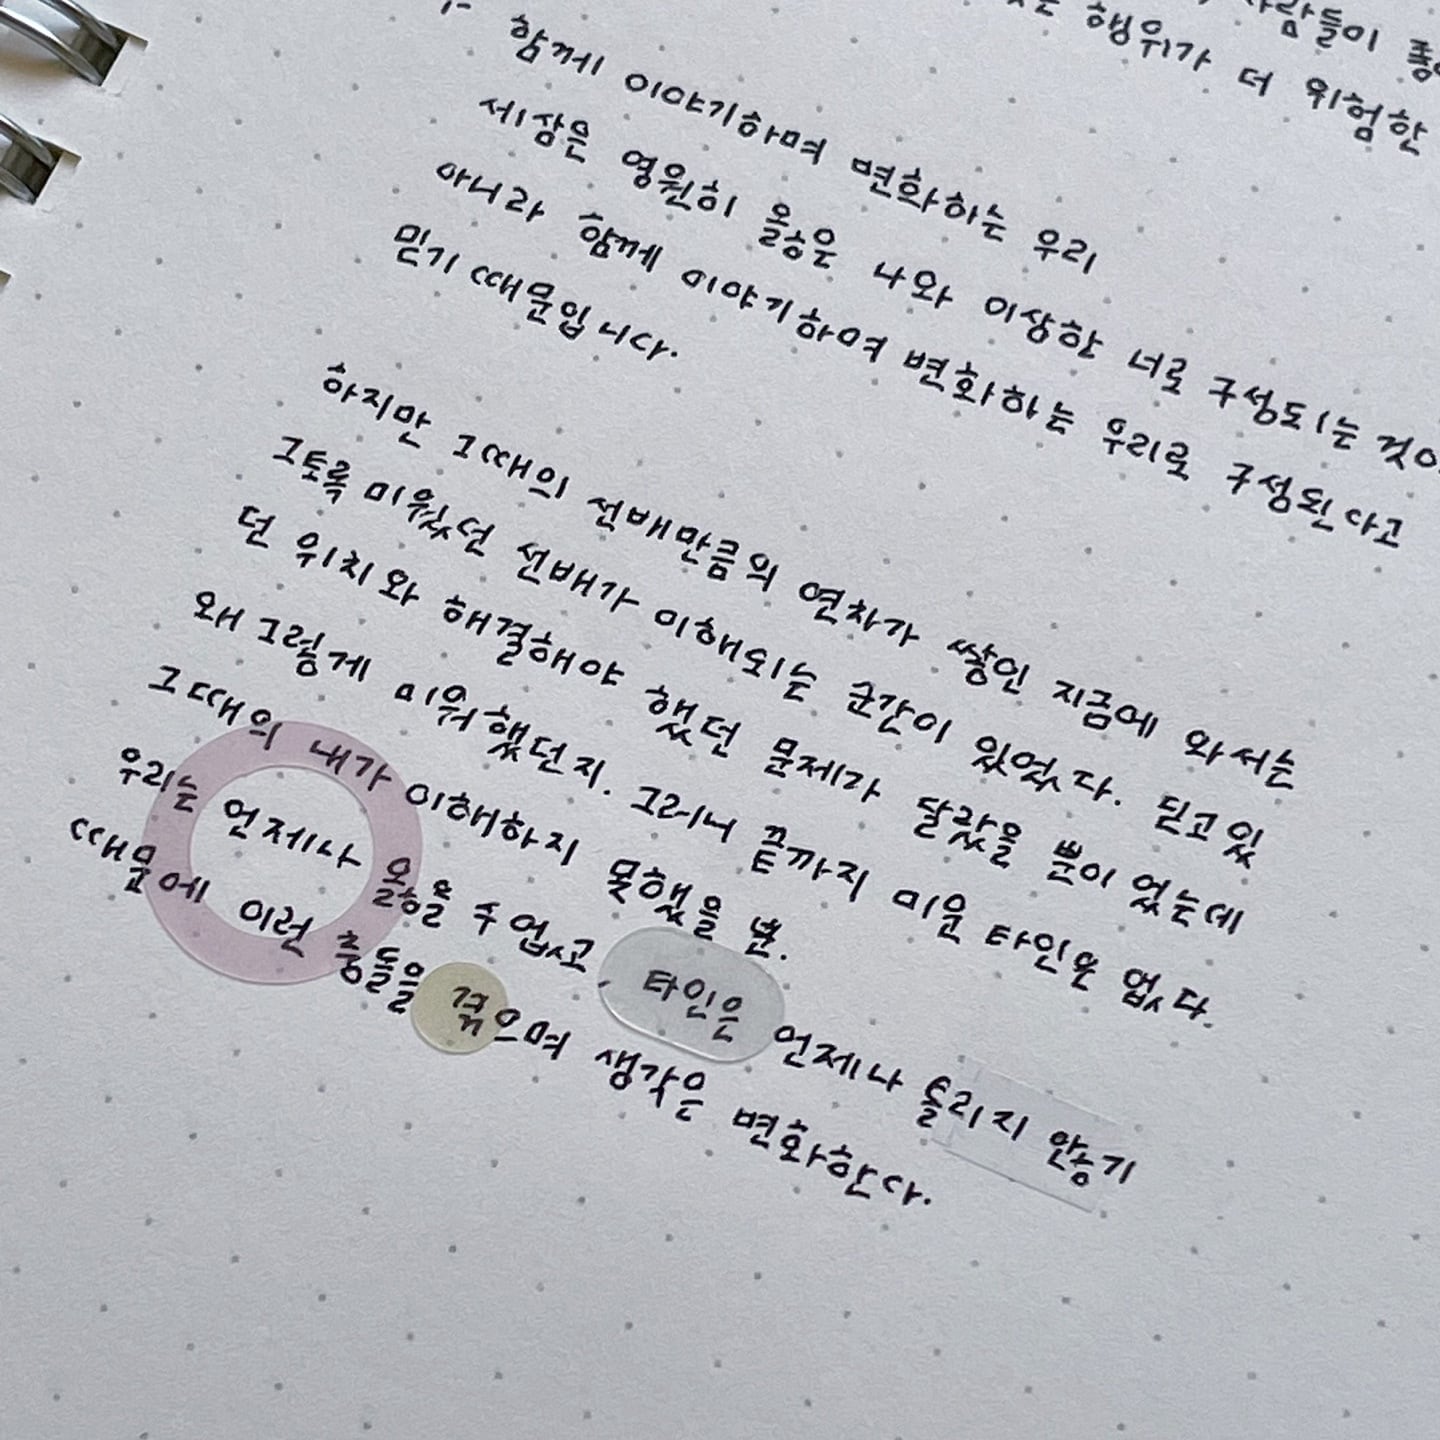 사람들이
행위가 더 위험한
함께 이야기하며 변화하는 우리
세상은 영원히 옳은 나와 이상한 너로 구성되는 것이
아니라 함께 이야기하며 변화하는 우리로 구성된다고
믿기 때문입니다.
하지만 그때의 선배만큼의 연차가 쌓인 지금에 와서는
그토록 미웠던 선배가 이해되는 순간이 있었다. 딛고 있
던 위치와 해결해야 했던 문제가 달랐을 뿐이었는데
왜 그렇게 미워했던지. 그러니 끝까지 미운 타인은 없다.
그때의 내가 이해하지 못했을 뿐.
우리는 언제나 옳을 수 없고 타인은 언제나 틀리지 않기
때문에 이런 충돌을 겪으며 생각은 변화한다.